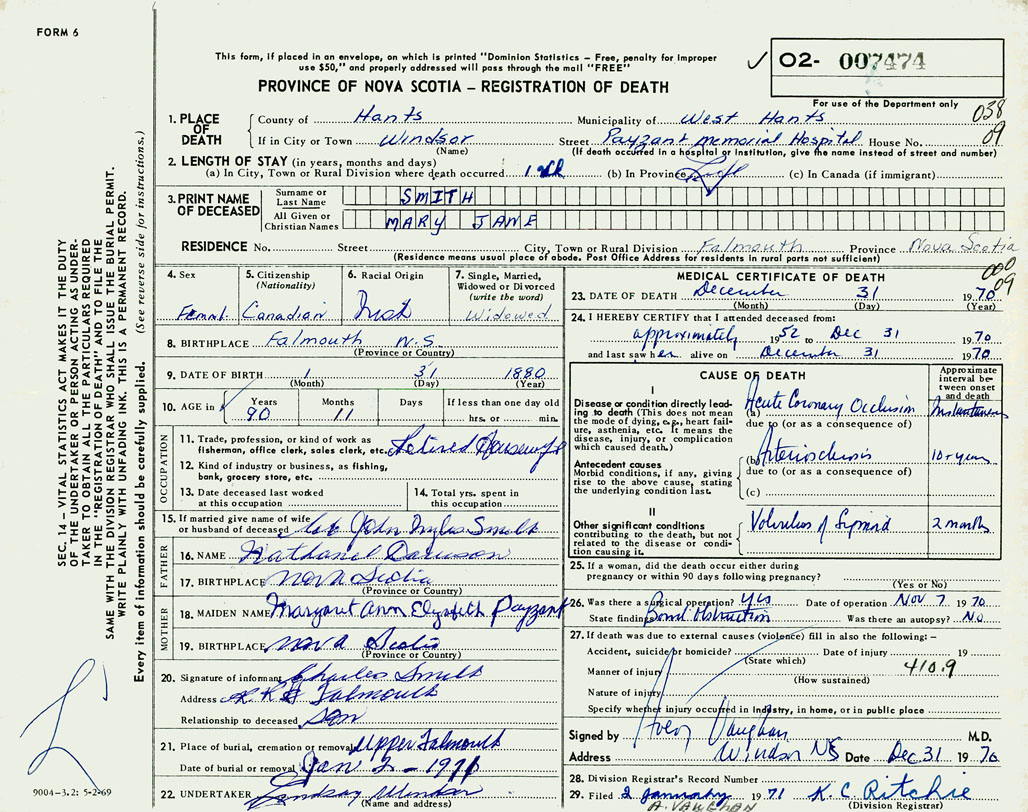 FORM 6
This form, if placed in an envelope, on which is printed "Dominion Statistics – Free, penalty for improper
use $50," and properly addressed will pass through the mail "FREE"
02- 007474
PROVINCE OF NOVA SCOTIA – REGISTRATION OF DEATH
For use of the Department only
038
09
1. PLACE OF DEATH
County of Hants Municipality of West Hants
If in City or Town Windsor Street Payzant Memorial Hospital House No.
(Name) (If death occurred in a hospital or institution, give the name instead of street and number)
2. LENGTH OF STAY (in years, months and days)
(a) In City, Town or Rural Division where death occurred (b) In Province Life (c) In Canada (if immigrant)
3. PRINT NAME OF DECEASED
Surname or Last Name SMITH
All Given or Christian Names MARY JANE
RESIDENCE No. Street City, Town or Rural Division Falmouth Province Nova Scotia
(Residence means usual place of abode. Post Office Address for residents in rural parts not sufficient)
000
09
4. Sex
5. Citizenship (Nationality) Canadian
6. Racial Origin Irish
7. Single, Married, Widowed or Divorced (write the word) Widowed
8. BIRTHPLACE Falmouth N.S.
(Province or Country)
9. DATE OF BIRTH 1 31 1880
(Month) (Day) (Year)
10. AGE in Years 90 Months 11 Days If less than one day old hrs. or min.
OCCUPATION
11. Trade, profession, or kind of work as
fisherman, office clerk, sales clerk, etc. Retired Housewife
12. Kind of industry or business, as fishing,
bank, grocery store, etc.
13. Date deceased last worked at this occupation
14. Total yrs. spent in this occupation
15. If married give name of wife
or husband of deceased John Myles Smith
FATHER
16. NAME Nathaniel Davison
17. BIRTHPLACE Nova Scotia
(Province or Country)
MOTHER
18. MAIDEN NAME Margaret Ann Elizabeth Payzant
19. BIRTHPLACE Nova Scotia
(Province or Country)
20. Signature of informant Charles Smith
Address Falmouth
Relationship to deceased Son
21. Place of burial, cremation or removal Upper Falmouth
Date of burial or removal Jan 2 - 1971
22. UNDERTAKER Lindsay Windsor
(Name and address)
MEDICAL CERTIFICATE OF DEATH
23. DATE OF DEATH December 31 1970
(Month) (Day) (Year)
24. I HEREBY CERTIFY that I attended deceased from:
approximately 1952 to Dec 31 1970
and last saw her alive on December 31 1970
CAUSE OF DEATH
Approximate interval between onset and death
I
Disease or condition directly leading
to death (This does not mean
the mode of dying, e.g., heart failure,
asthenia, etc. It means the
disease, injury, or complication
which caused death.)
(a) Acute Coronary Occlusion Instantaneous
due to (or as a consequence of)
Antecedent causes
Morbid conditions, if any, giving
rise to the above cause, stating
the underlying condition last.
(b) Arteriosclerosis 10+ years
due to (or as a consequence of)
(c)
II
Other significant conditions
contributing to the death, but not
related to the disease or condition
causing it.
Volvulus of Sigmoid 2 months
25. If a woman, did the death occur either during
pregnancy or within 90 days following pregnancy?
(Yes or No)
26. Was there a surgical operation? Yes Date of operation Nov 7 1970
State findings Bowel Obstruction Was there an autopsy? No
27. If death was due to external causes (violence) fill in also the following: –
Accident, suicide or homicide? Date of injury 19
(State which)
Manner of injury 410.9
(How sustained)
Nature of injury
Specify whether injury occurred in industry, in home, or in public place
Signed by Avery Vaughan M.D.
Address Windsor NS Date Dec 31 1970
28. Division Registrar's Record Number
29. Filed 2 January 1971 K C Ritchie
A. VAUGHAN (Division Registrar)
SEC. 14 – VITAL STATISTICS ACT MAKES IT THE DUTY
OF THE UNDERTAKER OR PERSON ACTING AS UNDER-
TAKER TO OBTAIN ALL THE PARTICULARS REQUIRED
IN THE "REGISTRATION OF DEATH" AND TO FILE THE
SAME WITH THE DIVISION REGISTRAR WHO SHALL ISSUE THE BURIAL PERMIT.
WRITE PLAINLY WITH UNFADING INK. THIS IS A PERMANENT RECORD.
Every item of information should be carefully supplied. (See reverse side for instructions.)
9004-3.2: 5-2-69